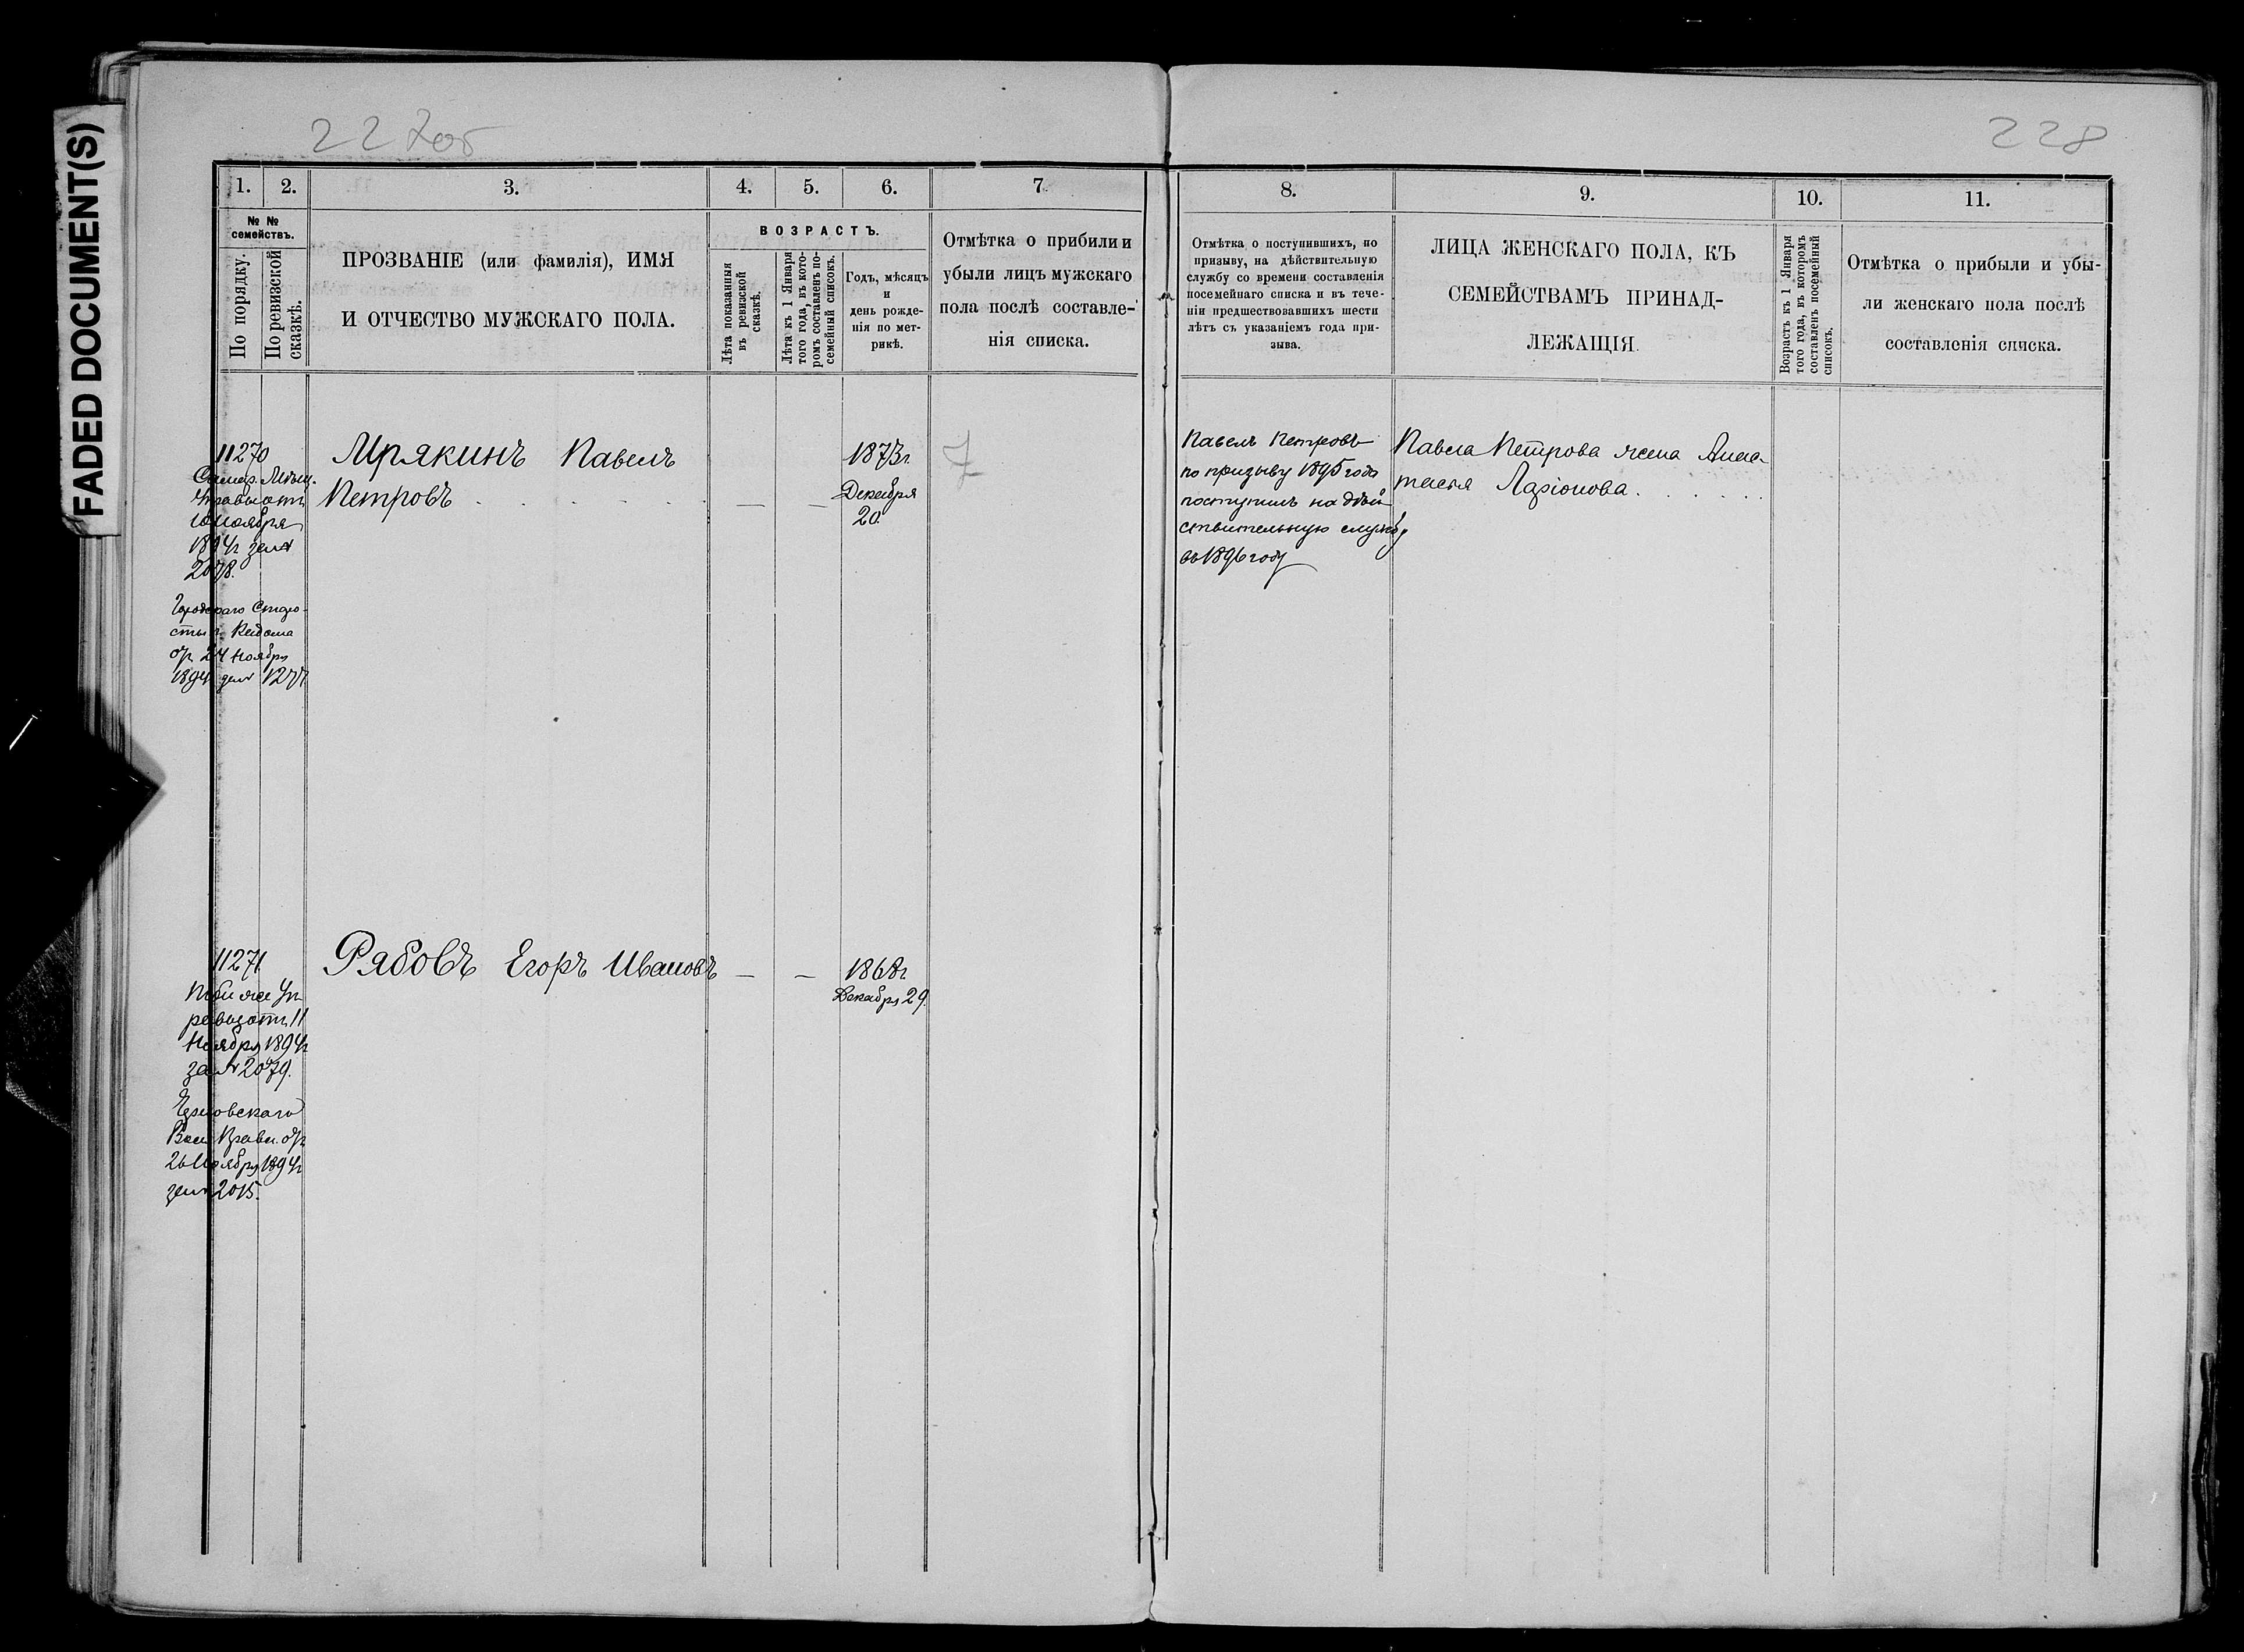 FADED DOCUMENT(S)
227об
228
1.
2.
3.
4.
5.
6.
7.
8.
9.
10.
11.
№ №
семействъ.
По порядку.
По ревизской
сказкѣ.
ПРОЗВАНІЕ (или фамилія), ИМЯ
И ОТЧЕСТВО МУЖСКАГО ПОЛА.
ВОЗРАСТЪ.
Лѣта показанныя
въ ревизской
сказкѣ.
Лѣта къ 1 Января
того года, въ кото-
ромъ составленъ по-
семейный списокъ.
Годъ, мѣсяцъ
и
день рожде-
нія по мет-
рикѣ.
Отмѣтка о прибили и
убыли лицъ мужскаго
пола послѣ составле-
нія списка.
Отмѣтка о поступившихъ, по
призыву, на дѣйствительную
службу со времени составленія
посемейнаго списка и въ тече-
ніи предшествовавшихъ шести
лѣтъ съ указаніемъ года при-
зыва.
ЛИЦА ЖЕНСКАГО ПОЛА, КЪ
СЕМЕЙСТВАМЪ ПРИНАД-
ЛЕЖАЩІЯ.
Возрастъ къ 1 Января
того года, въ которомъ
составленъ посемейный
списокъ.
Отмѣтка о прибыли и убы-
ли женскаго пола послѣ
составленія списка.
11270
Самар. Мѣщ.
Управы отъ
10 Ноября
1894 г за №
2078.
Городскаго Старо-
сты г. Кадома
отъ 24 Ноября
1894 за № 1277
Мрякинъ Павелъ
Петровъ
1873 г.
Декабря
20.
7
Павелъ Петровъ
по призыву 1895 года
поступилъ на дѣй
ствительную службу
въ 1896 году
Павла Петрова жена Анас-
тасія Ларіонова.
11271.
Той же Уп
равы отъ 11
Ноября 1894 г
за № 2079.
Вол. Правл. отъ
26 Ноября 1894 г
за № 2015.
Рябовъ Егоръ Ивановъ
1868 г
Декабря 29.